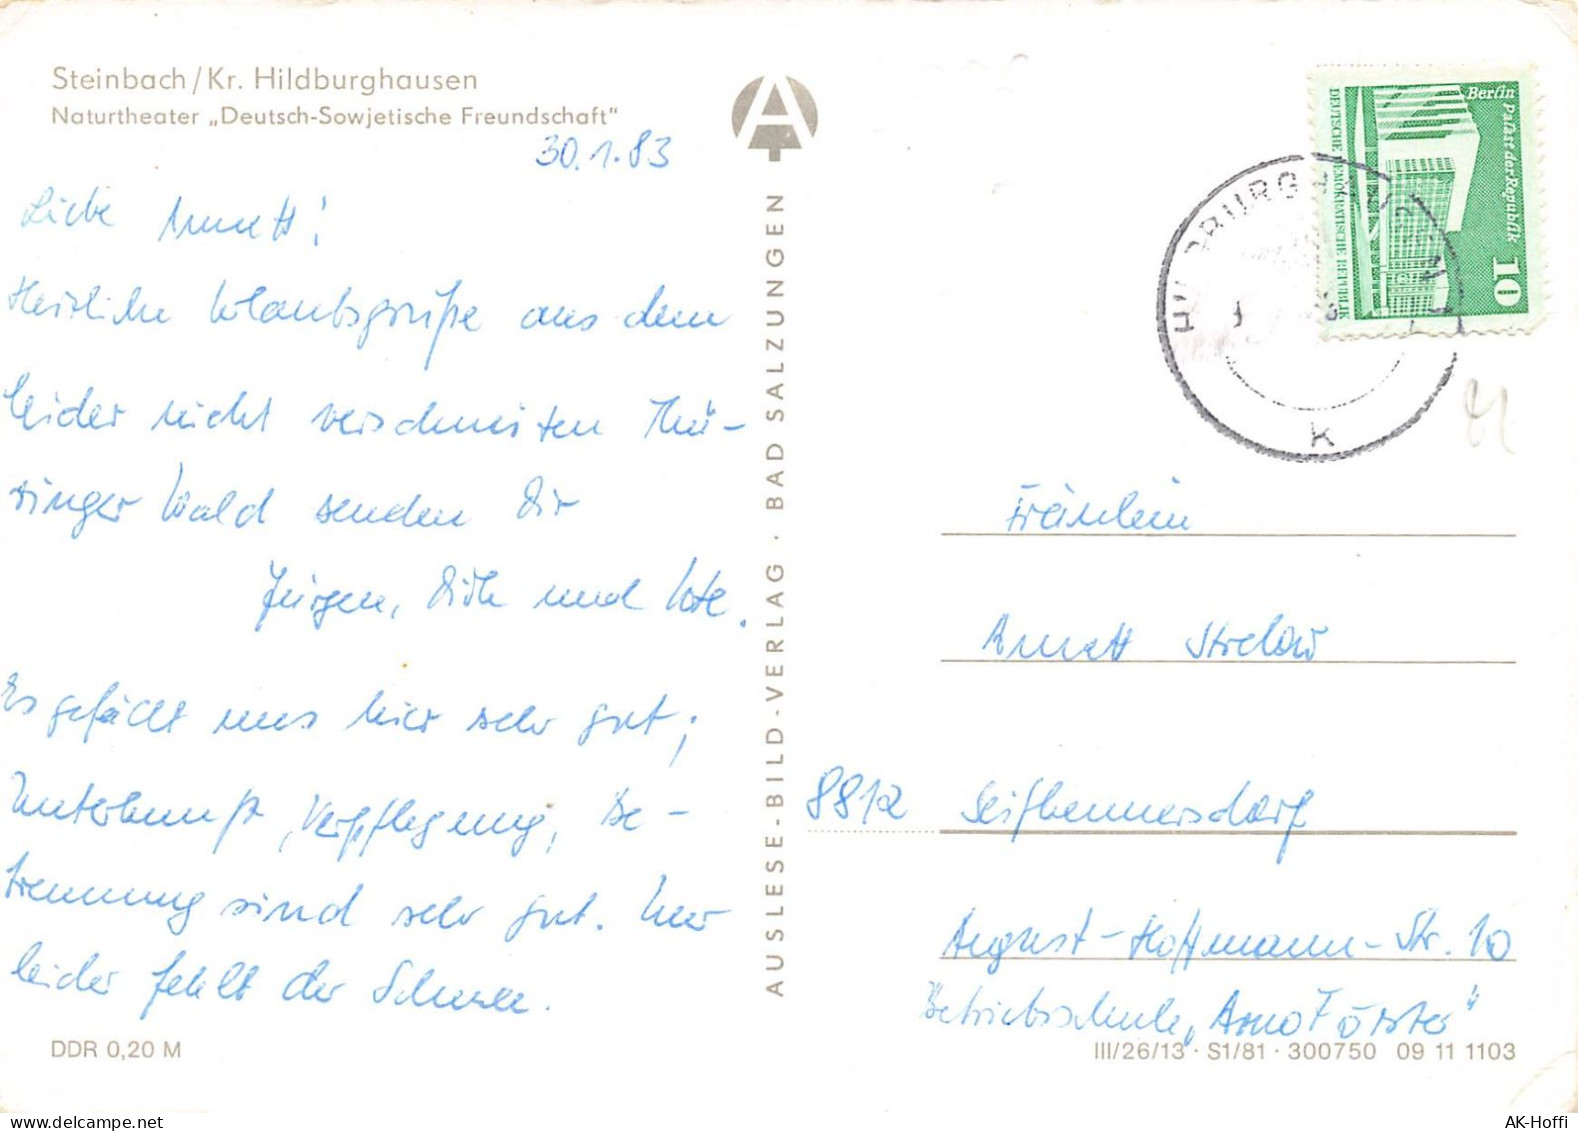 Steinbach/Kr. Hildburghausen
Naturtheater „Deutsch-Sowjetische Freundschaft"
30.1.83
Liebe Annett!
Herzliche Urlaubsgrüße aus dem
leider nicht verschneiten Thü-
ringer Wald senden Dir
Jürgen, und Ute.
Es gefällt uns hier sehr gut;
Unterkunft, Verpflegung, Be-
treuung sind sehr gut. Nur
leider fehlt der Schnee.
DDR 0,20 M
AUSLESE-BILD-VERLAG · BAD SALZUNGEN
A
Berlin
Palast der Republik
10
DEUTSCHE DEMOKRATISCHE REPUBLIK
HILDBURGHAUSEN 1
k
Fräulein
Annett Strelow
8812 Seifhennersdorf
August-Hoffmann-Str. 10
Betriebsschule „Arno Förster"
III/26/13 · S1/81 · 300750 09 11 1103
AK-Hoffi